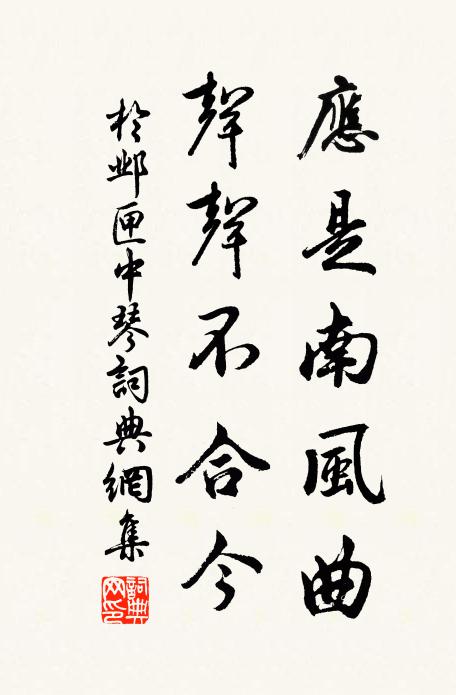 應是南風曲
聲聲不合今
於邺匣中琴詞典網集
詞典
网印